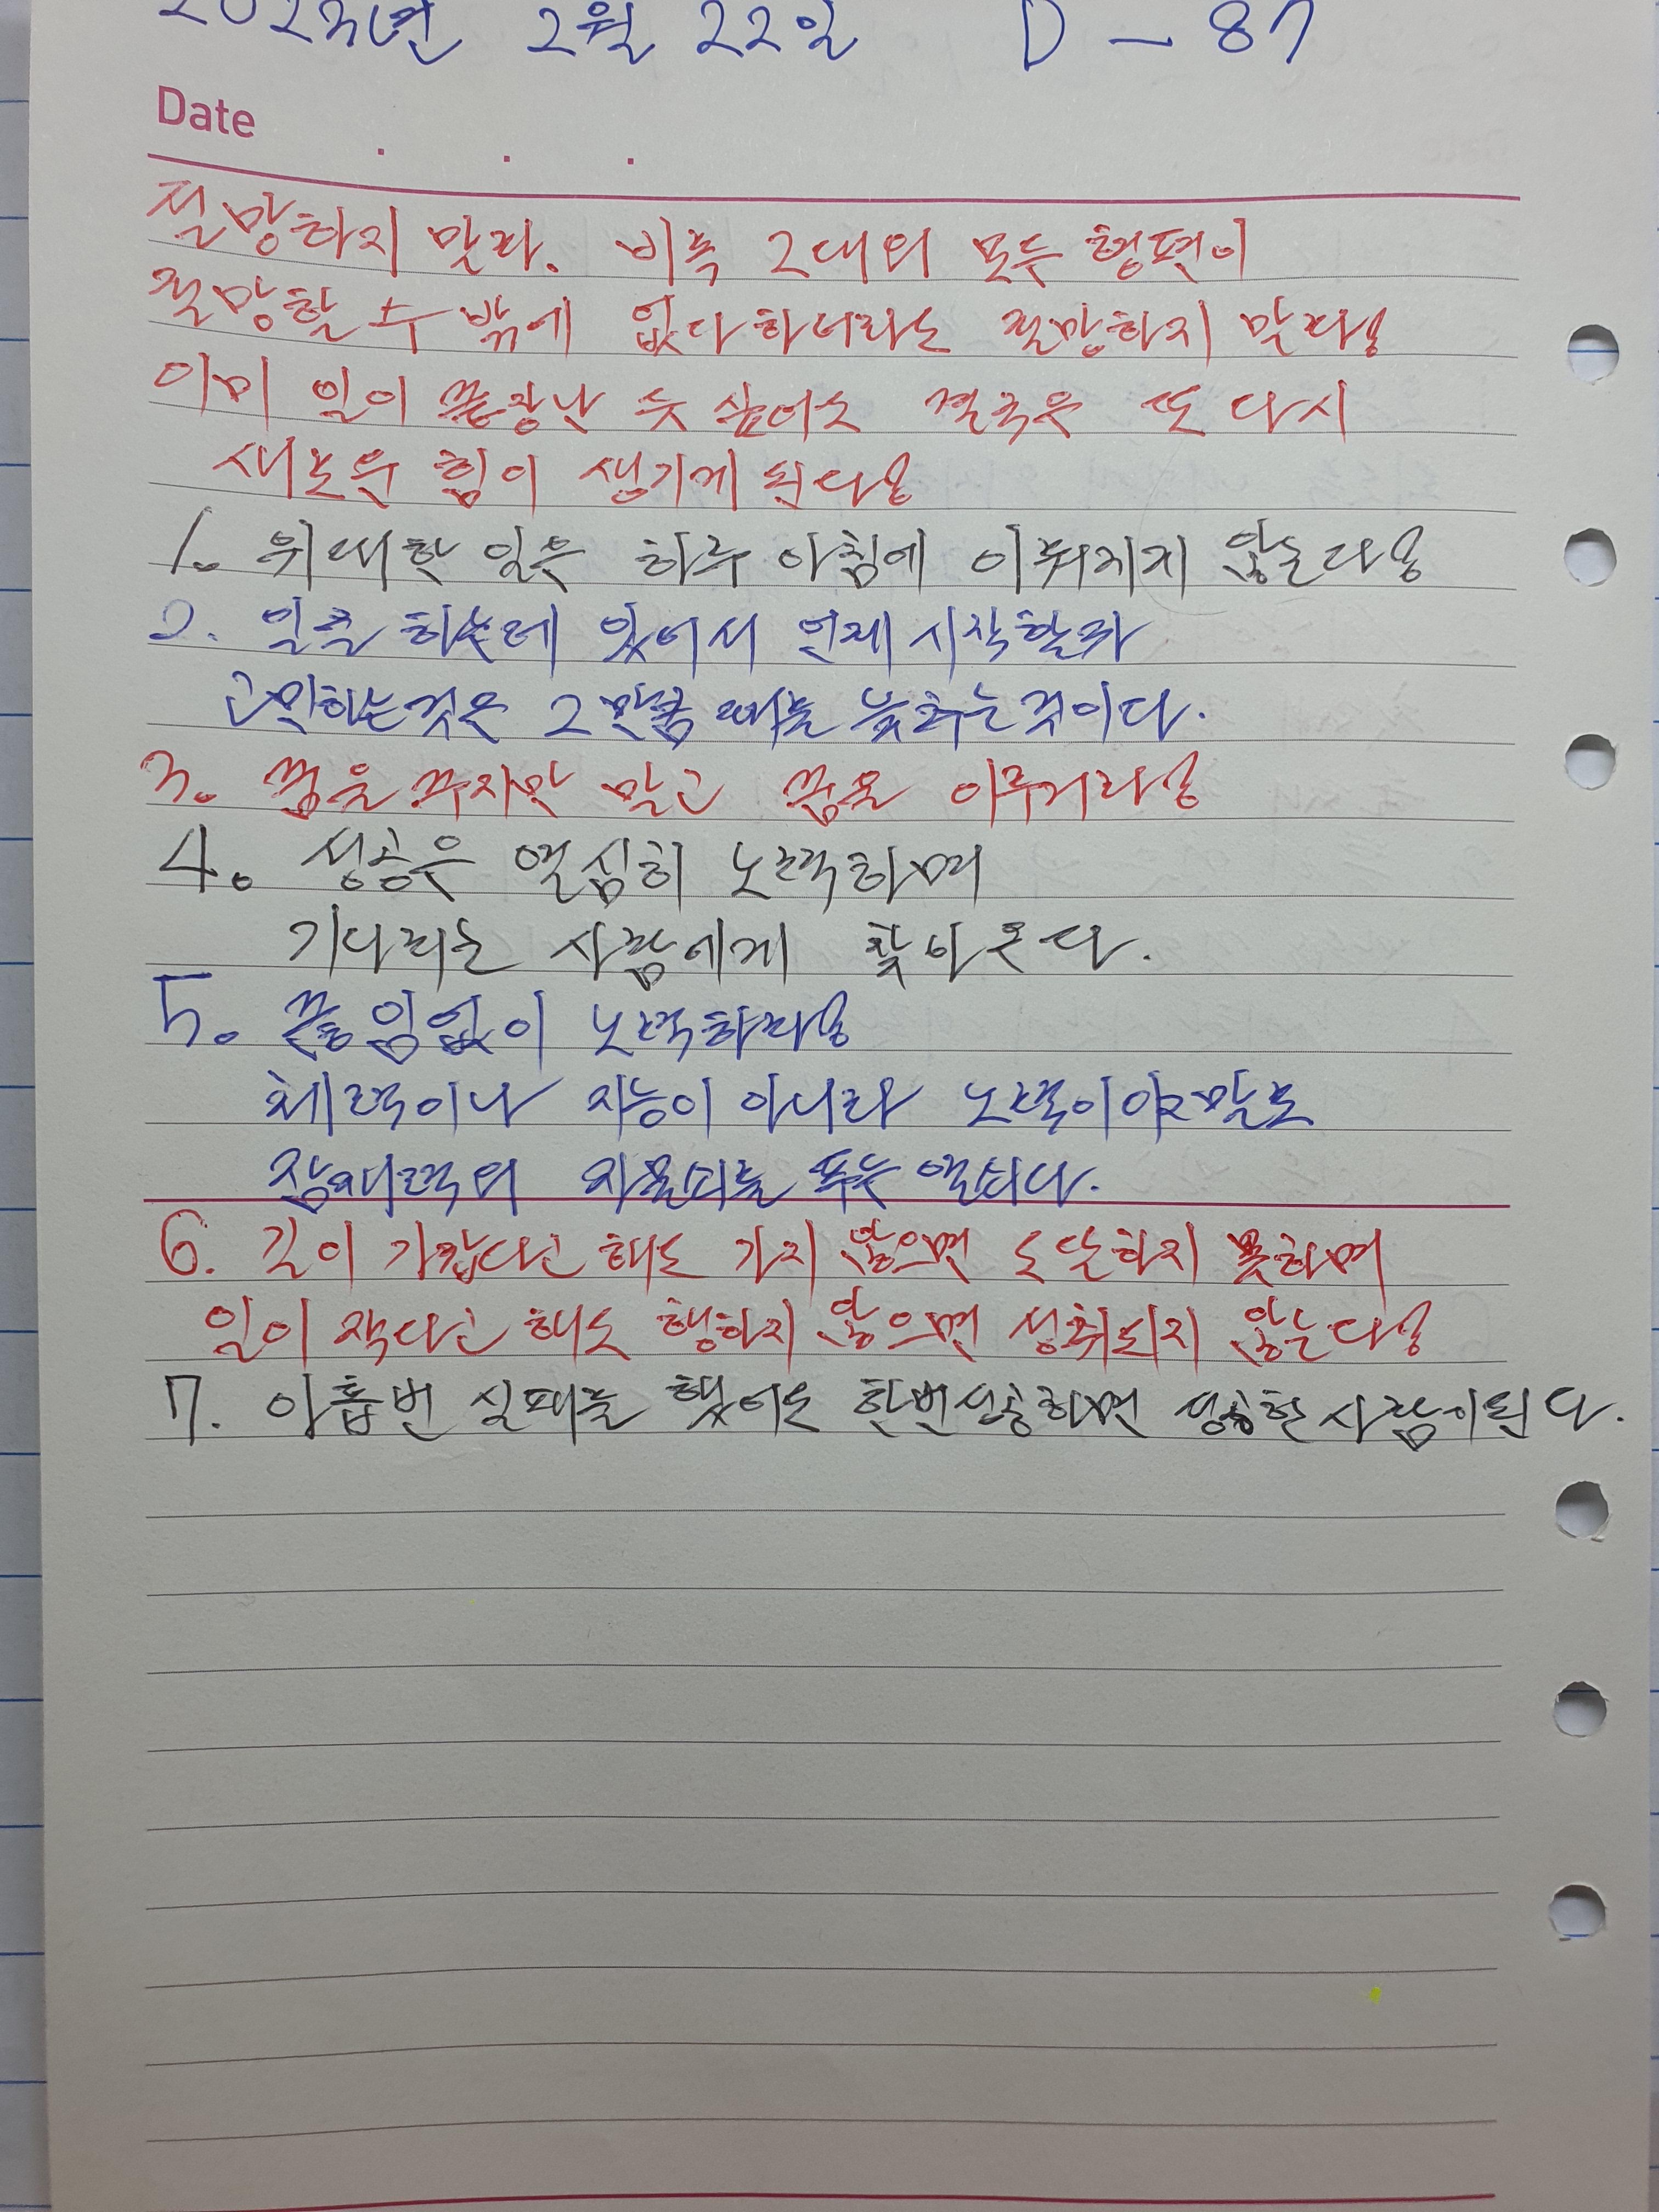 2023년 2월 22일 D-87
Date . . .
절망하지 말라. 비록 그대의 모든 형편이
절망할 수 밖에 없다하더라도 절망하지 말라!
이미 일이 끝장난 듯 싶어도 결국은 또 다시
새로운 힘이 생기게 된다!
1. 위대한 일은 하루 아침에 이뤄지지 않는다!
2. 일을 하는데 있어서 언제 시작할까
고민하는것은 그만큼 때를 늦추는것이다.
3. 꿈을 꾸지만 말고 꿈을 이루거라!
4. 성공은 열심히 노력하며
기다리는 사람에게 찾아 온다.
5. 끊임없이 노력하라!
체력이나 지능이 아니라 노력이야말로
잠재력의 자물쇠를 푸는 열쇠다.
6. 길이 가깝다고 해도 가지 않으면 도달하지 못하며
일이 작다고 해도 행하지 않으면 성취되지 않는다!
7. 아홉번 실패를 했어도 한번성공하면 성공한 사람이된다.